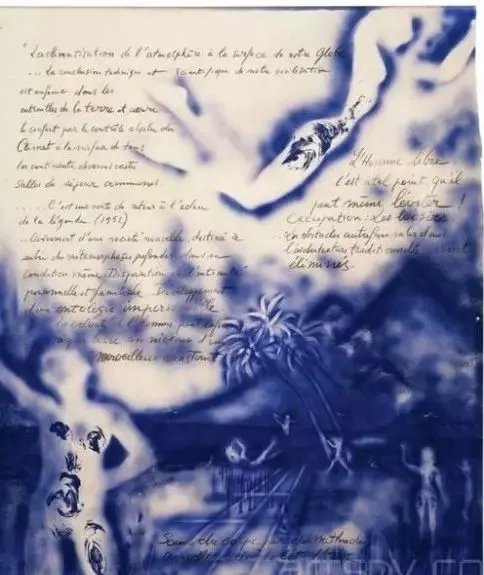 "La climatisation de l'atmosphère à la surface de notre Globe
... la conclusion technique et scientifique de notre civilisation
est enfouie dans les
entrailles de la terre et assure
le confort par le contrôle absolu du
Climat à la surface de tous
les continents, devenus vastes
salles de séjour communes.
..... C'est une sorte de retour à l'eden
de la légende. (1951)
.. L'avènement d'une société nouvelle, destinée à
subir des métamorphoses profondes dans sa
condition même. Disparition de l'intimité
personnelle et familiale. Développement
d'une ontologie impersonnelle
la volonté de l'Homme peut enfin
la vie au niveau d'un
merveilleux constant
L'Homme libre
l'est à tel point, qu'il
peut même léviter!
Occupation: Les loisirs.
.. Les obstacles autrefois subis dans
l'architecture traditionnelle sont
éliminés
du corps par